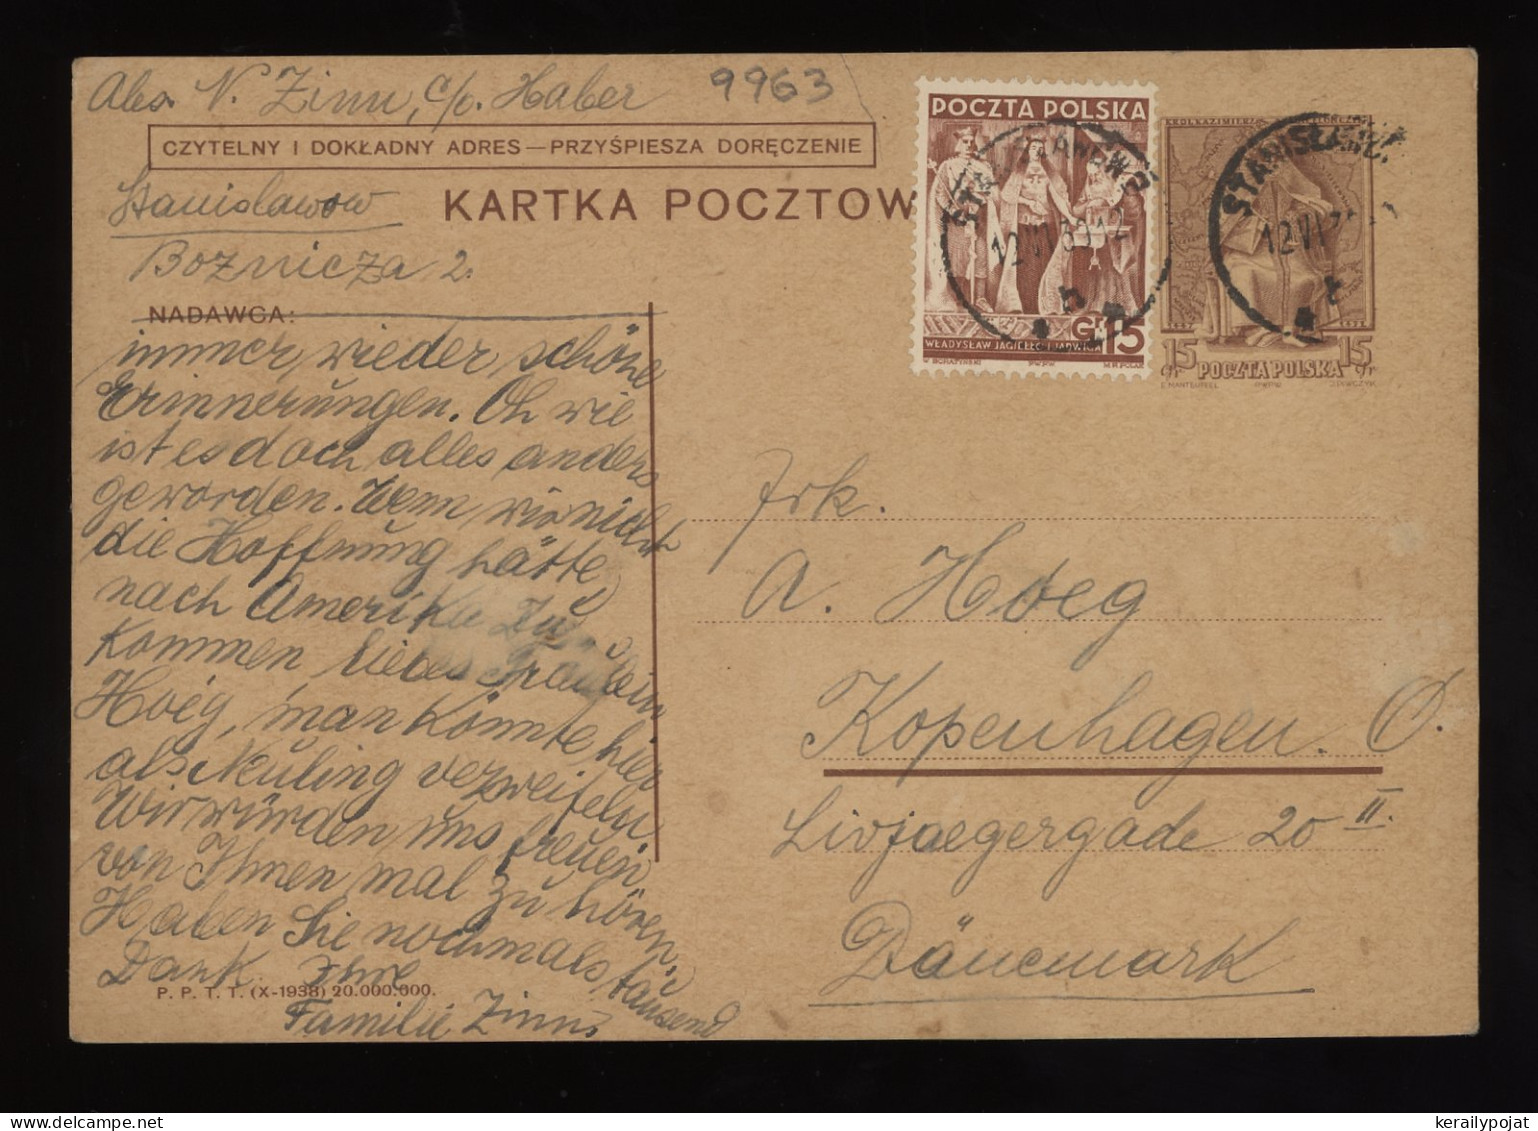 Abs. N. Zinn, c/o. Haber
9963
CZYTELNY I DOKŁADNY ADRES—PRZYŚPIESZA DORĘCZENIE
Stanislawow
KARTKA POCZTOW
Boznicza 2.
NADAWCA:
POCZTA POLSKA
WŁADYSŁAW JAGIEŁŁO I JADWIGA
Gr. 15
12 VI 39 12
STANISŁAWÓW
12 VI
15 gr POCZTA POLSKA 15 gr
immer wieder schöne
Erinnerungen. Oh wie
ist es doch alles anders
geworden. Wenn wir nicht
die Hoffnung hätte,
nach Amerika zu
kommen liebes Fräulein
Hoeg, man könnte hier
als Neuling verzweifeln
Wir würden uns freuen
von Ihnen mal zu hören,
Haben Sie nochmals tausend
Dank. Ihre
Familie Zinns
P. P. T. T. (X-1938) 20.000.000.
Frk.
A. Hoeg
Kopenhagen. O.
Livjaegergade 20 II.
Dänemark
kerailypojat.com